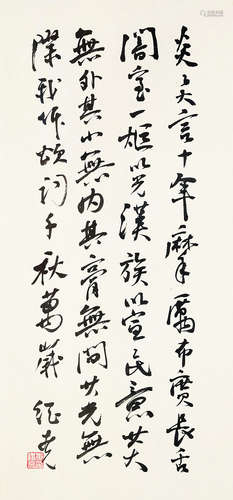 炎炎大言十年摩厲布廣長舌
闇室一炬以光漢族以宣民意其大
無外其小無内其膏無間其光無
際我作頌詞千秋萬歲